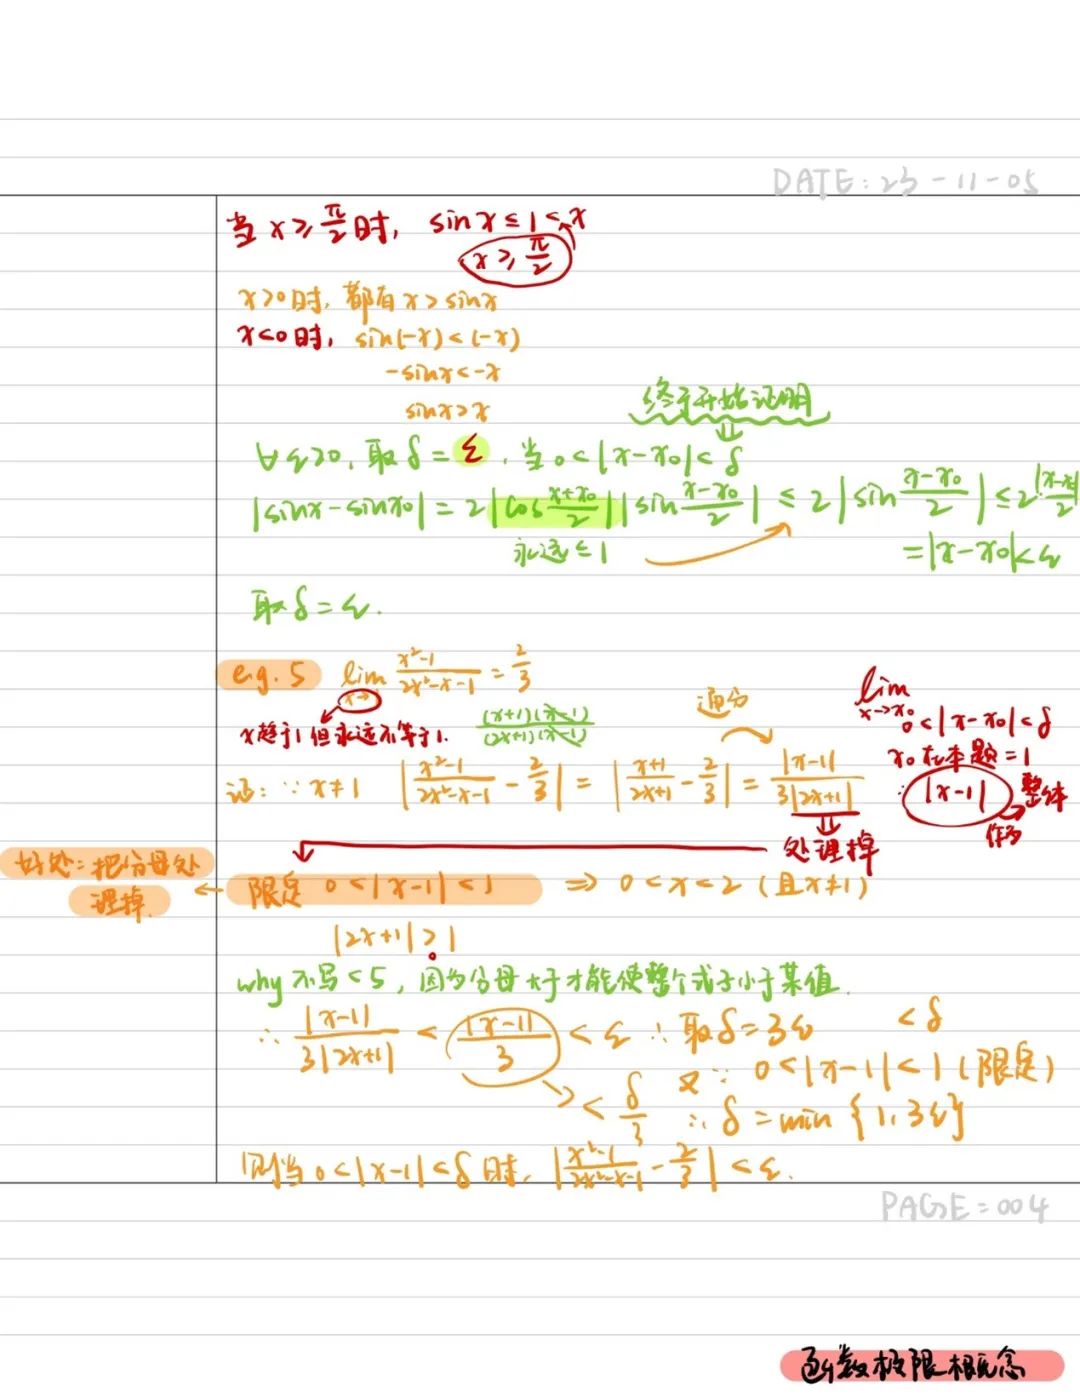 DATE: 23-11-05
当 x ≥ π/2 时, sinx ≤ 1 < x
x ≥ π/2
x>0时, 都有 x > sinx
x<0时, sin(-x) < (-x)
-sinx < -x
sinx > x
终于开始证明
∀ε>0, 取 δ = ε, 当 0<|x-x₀|<δ
|sinx-sinx₀| = 2|cos (x+x₀)/2||sin (x-x₀)/2| ≤ 2|sin (x-x₀)/2| ≤ 2|x-x₀|/2
永远 ≤ 1
= |x-x₀| < ε
取 δ = ε.
e.g. 5 lim x→1 (x²-1)/(2x²-x-1) = 2/3
x趋于1但永远不等于1.
(x+1)(x-1)/(2x+1)(x-1)
通分
lim x→x₀
0<|x-x₀|<δ
x₀在本题=1
证: ∵ x≠1 |(x²-1)/(2x²-x-1) - 2/3| = |(x+1)/(2x+1) - 2/3| = |x-1|/3|2x+1|
∵ |x-1| 整体
处理掉
好处: 把分母处
理掉.
限定 0<|x-1|<1 ⇒ 0<x<2 (且x≠1)
|2x+1| > 1
why 不写<5, 因为分母大于才能使整个式子小于某值.
∴ |x-1|/3|2x+1| < |x-1|/3 < ε ∴ 取 δ=3ε <δ
< δ/3
又∵ 0<|x-1|<1 (限定)
∴ δ = min {1, 3ε}
则当 0<|x-1|<δ 时, |(x²-1)/(2x²-x-1) - 2/3| < ε.
PAGE = 004
函数极限概念